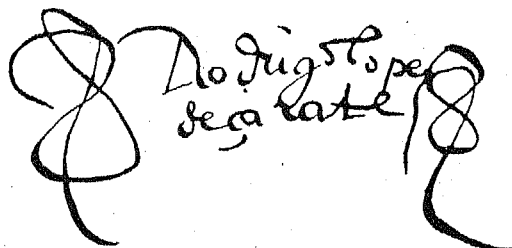 Rodrigo lopez
de çarate